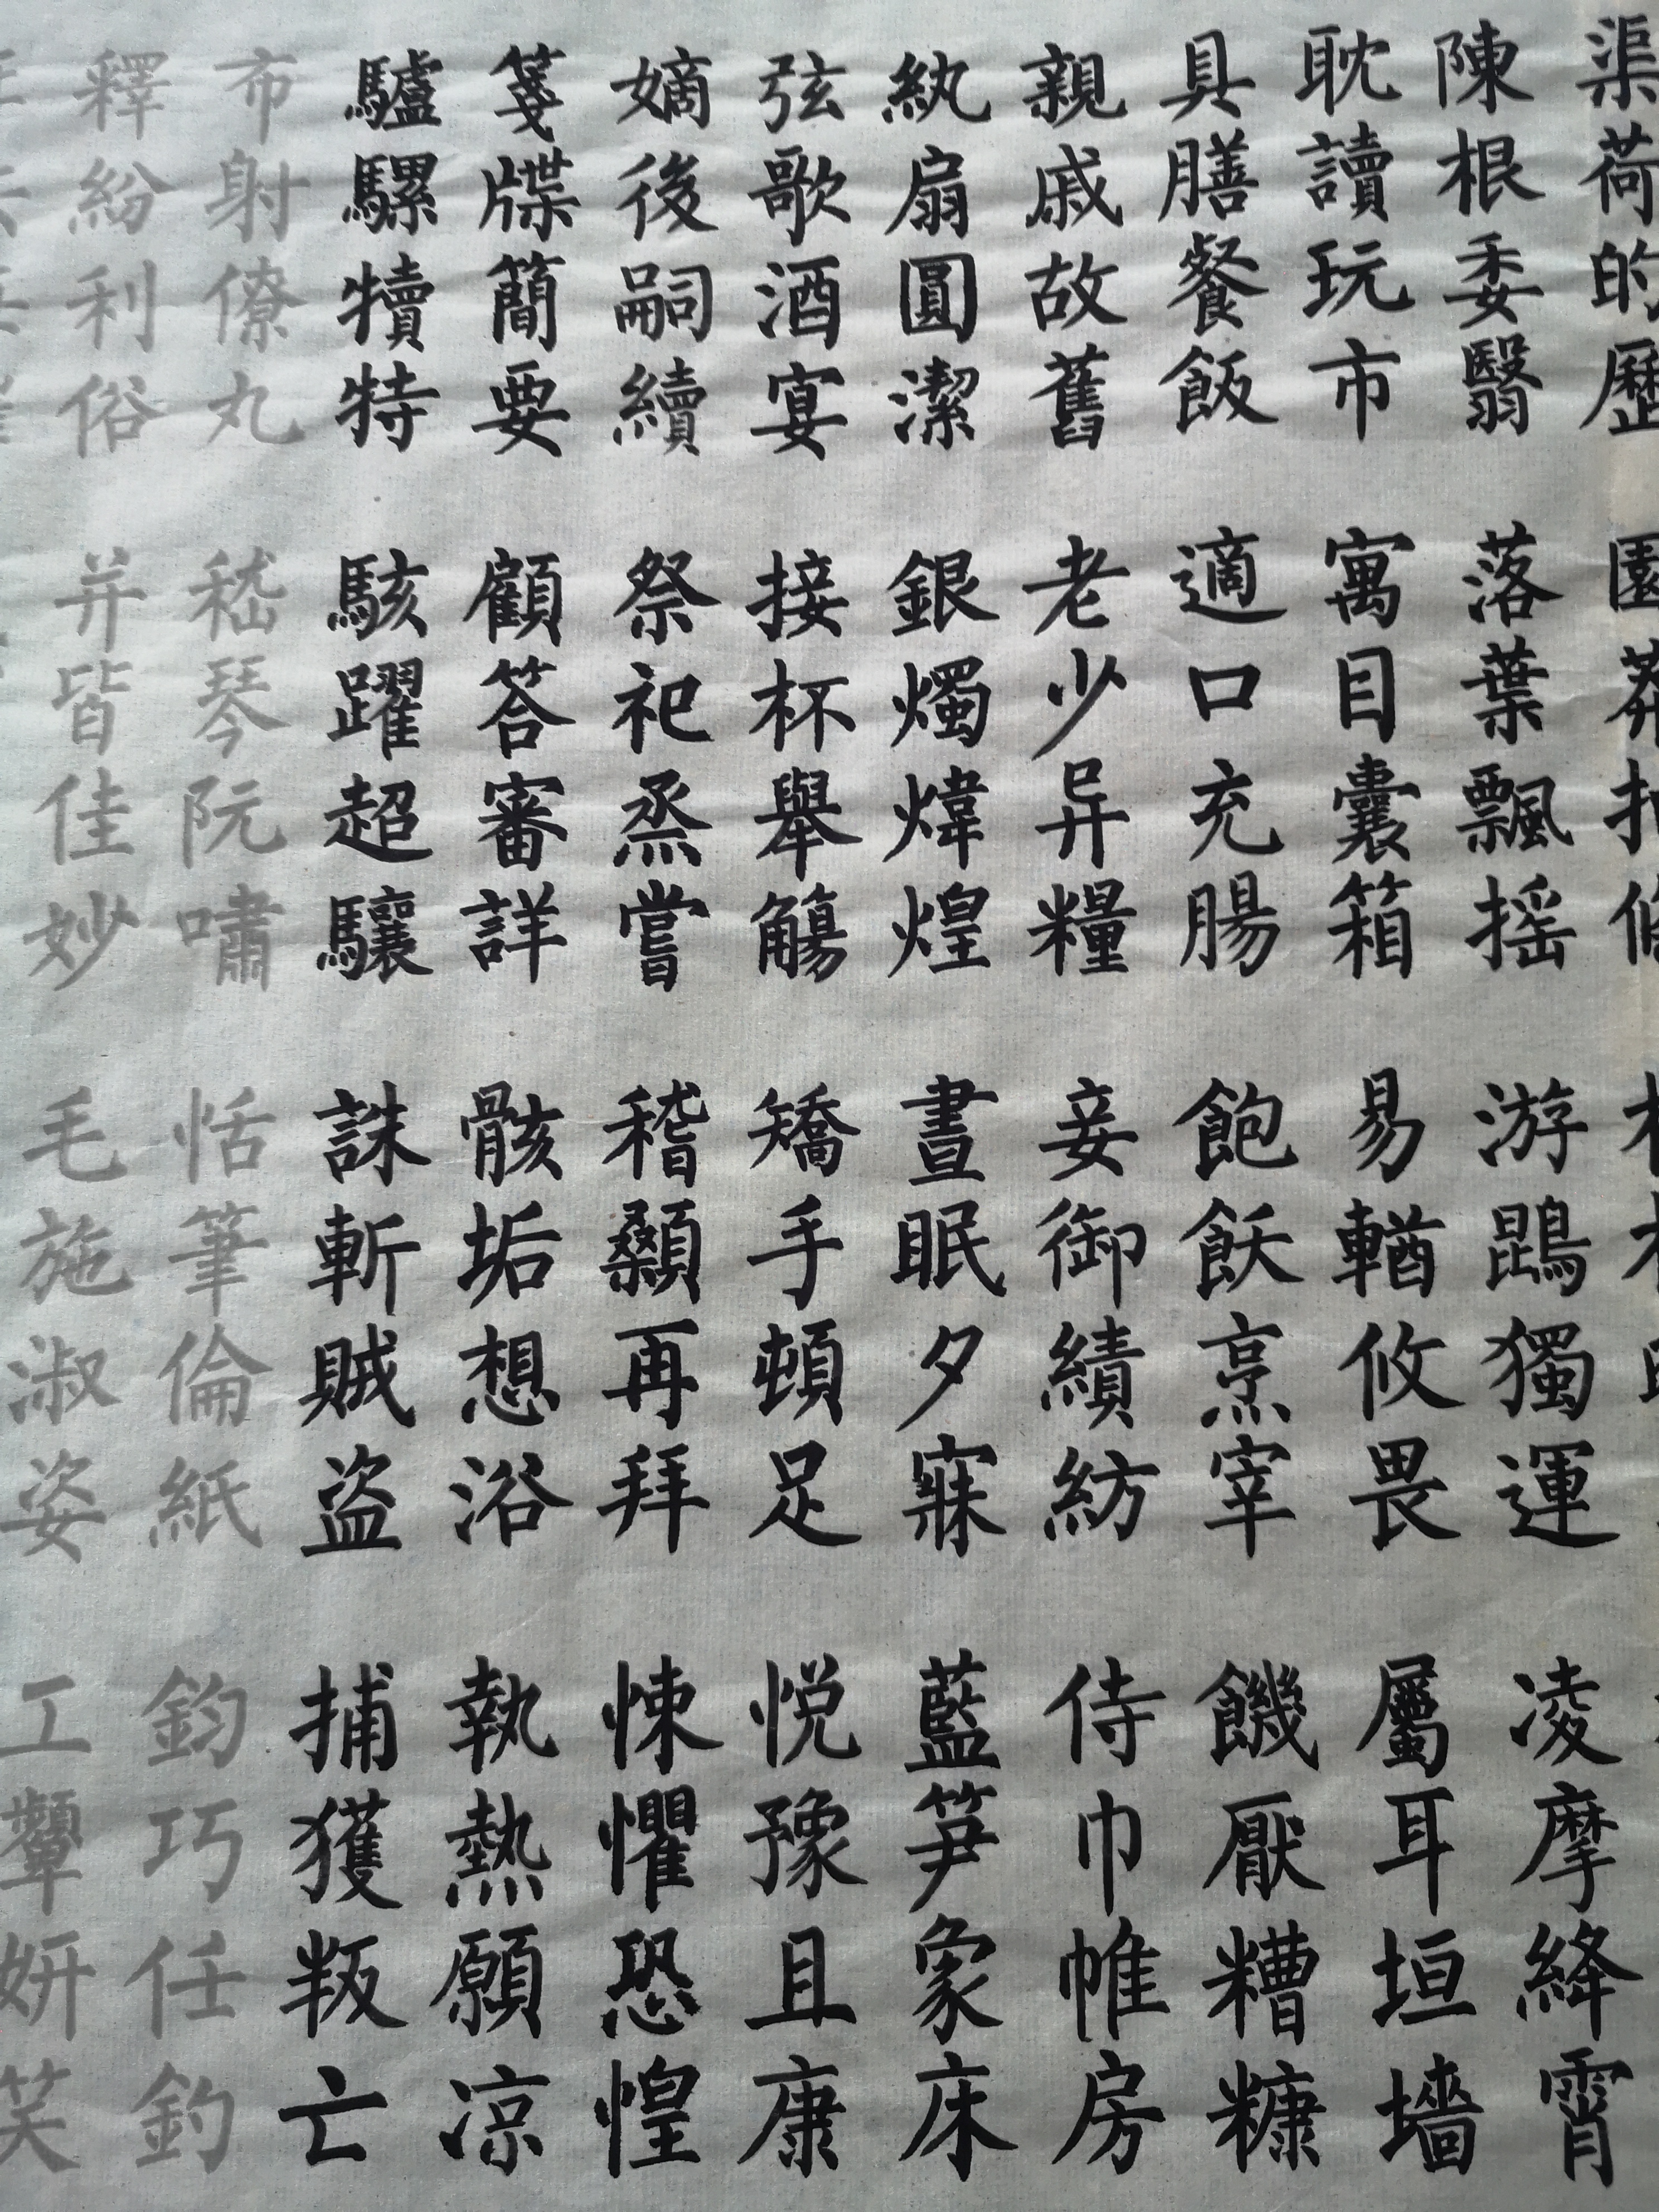 渠荷的歷 園莽抽條
陳根委翳 落葉飄摇 游鵾獨運 凌摩絳霄
耽讀玩市 寓目囊箱 易輶攸畏 屬耳垣墻
具膳餐飯 適口充腸 飽飫烹宰 饑厭糟糠
親戚故舊 老少异糧 妾御績紡 侍巾帷房
紈扇圓潔 銀燭煒煌 晝眠夕寐 藍笋象床
弦歌酒宴 接杯舉觴 矯手頓足 悦豫且康
嫡後嗣續 祭祀烝嘗 稽顙再拜 悚懼恐惶
箋牒簡要 顧答審詳 骸垢想浴 執熱願凉
驢騾犢特 駭躍超驤 誅斬賊盗 捕獲叛亡
布射僚丸 嵇琴阮嘯 恬筆倫紙 鈞巧任釣
釋紛利俗 并皆佳妙 毛施淑姿 工顰妍笑